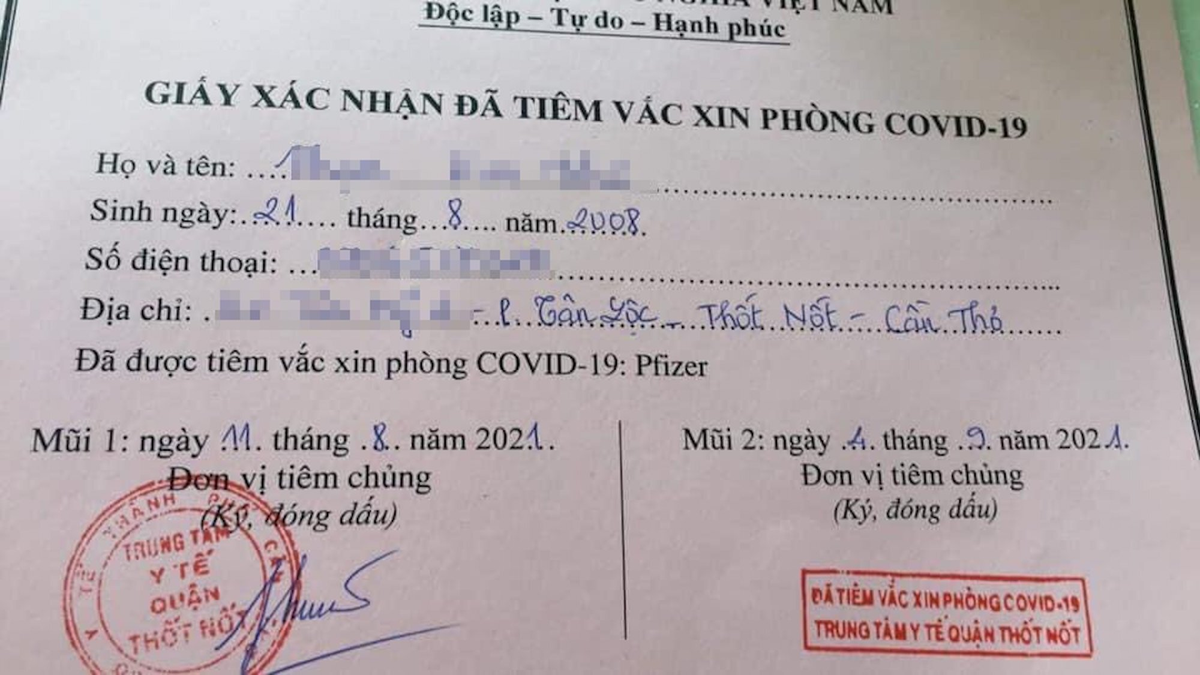 NGHĨA VIỆT NAM
Độc lập – Tự do – Hạnh phúc
GIẤY XÁC NHẬN ĐÃ TIÊM VẮC XIN PHÒNG COVID-19
Họ và tên:
Sinh ngày: 21 tháng 8 năm 2008.
Số điện thoại:
Địa chỉ: - P. Tân Lộc - Thốt Nốt - Cần Thơ
Đã được tiêm vắc xin phòng COVID-19: Pfizer
Mũi 1: ngày 11. tháng .8. năm 2021.
Đơn vị tiêm chủng
(Ký, đóng dấu)
Y TẾ THÀNH PHỐ CẦN
TRUNG TÂM
Y TẾ
QUẬN
THỐT NỐT
Mũi 2: ngày .4. tháng .9. năm 2021.
Đơn vị tiêm chủng
(Ký, đóng dấu)
ĐÃ TIÊM VẮC XIN PHÒNG COVID-19
TRUNG TÂM Y TẾ QUẬN THỐT NỐT